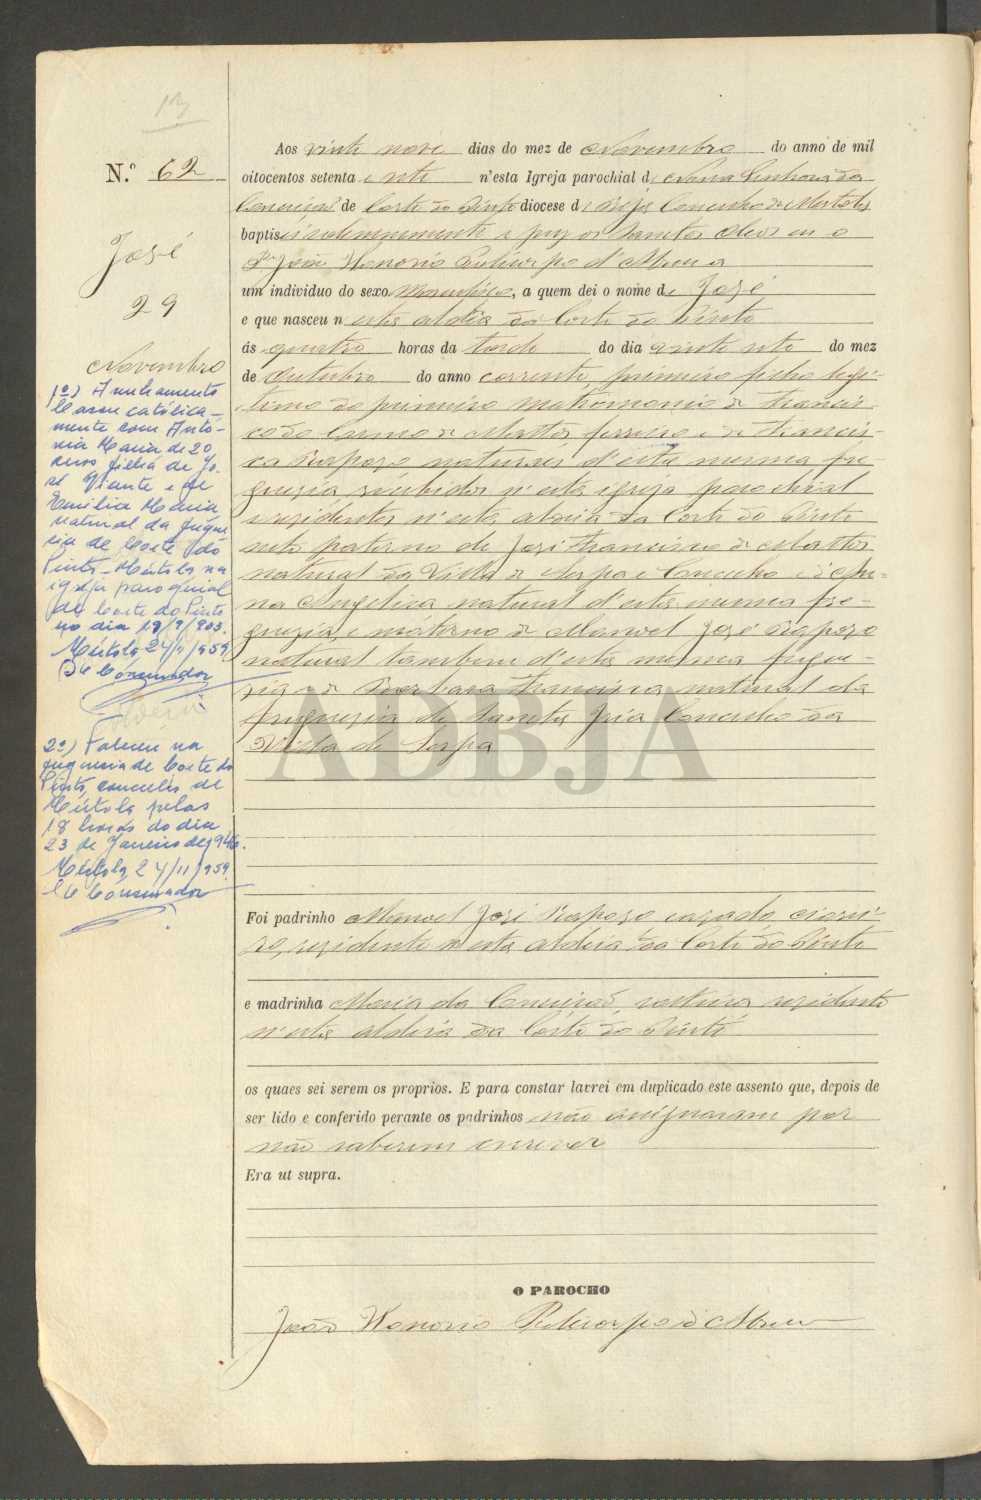 13
N.º 62
José
29
Novembro
1º) Averbamento
Casou católica-
mente com Antó-
nia Maria de 20
anos filha de Jo-
sé Viante e de
Emilia Maria
natural da fregue
sia de Corte do
Pinto - Mértola na
igreja paroquial
de Corte do Pinto
no dia 19/9/903.
Mértola 24/11/959
O Conservador
2º) Faleceu na
freguesia de Corte do
Pinto, concelho de
Mértola pelas
18 horas do dia
23 de Janeiro de 1946.
Mértola, 24/11/959
O Conservador
Aos vinte nove dias do mez de Novembro do anno de mil
oitocentos setenta e sete n'esta Igreja parochial de Nossa Senhora da
Conceição de Corte do Pinto diocese de Beja Concelho de Mertola
baptisei solemnemente e puz os Sanctos Oleos eu o
Pe João Honorio Policarpo d'Abreu a
um individuo do sexo Masculino, a quem dei o nome de José
e que nasceu n'esta aldeia da Corte do Pinto
ás quatro horas da tarde do dia vinte sete do mez
de Outubro do anno corrente, primeiro filho legi-
timo do primeiro matrimonio de Francis-
co do Carmo de Mattos, ferreiro e de Francis-
ca Rapozo naturaes d'esta mesma fre-
guezia, recebidos n'esta igreja parochial
e rezidentes n'esta aldeia da Corte do Pinto
neto paterno de José Francisco de Mattos
natural da Villa de Serpa e Concelho e d'An-
na Angelica natural d'esta mesma fre-
guezia, e materno de Manoel José Rapozo
natural tambem d'esta mesma fregue-
zia e de Barbara Francisca natural da
freguezia de Sancta Iria Concelho da
Villa de Serpa
ADBJA
Foi padrinho Manoel José Rapozo cazado
ro, rezidente n'esta aldeia da Corte do Pinto
e madrinha Maria da Conceição, solteira rezidente
n'esta aldeia da Corte do Pinto
os quaes sei serem os proprios. E para constar lavrei em duplicado este assento que, depois de
ser lido e conferido perante os padrinhos não assignaram por
não saberem escrever
Era ut supra.
O PAROCHO
João Honorio Policarpo d'Abreu